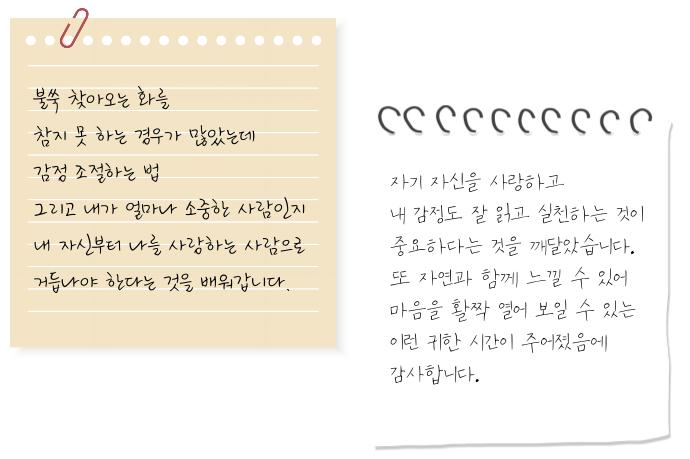 불쑥 찾아오는 화를
참지 못 하는 경우가 많았는데
감정 조절하는 법
그리고 내가 얼마나 소중한 사람인지
내 자신부터 나를 사랑하는 사람으로
거듭나야 한다는 것을 배워갑니다.
자기 자신을 사랑하고
내 감정도 잘 읽고 실천하는 것이
중요하다는 것을 깨달았습니다.
또 자연과 함께 느낄 수 있어
마음을 활짝 열어 보일 수 있는
이런 귀한 시간이 주어졌음에
감사합니다.